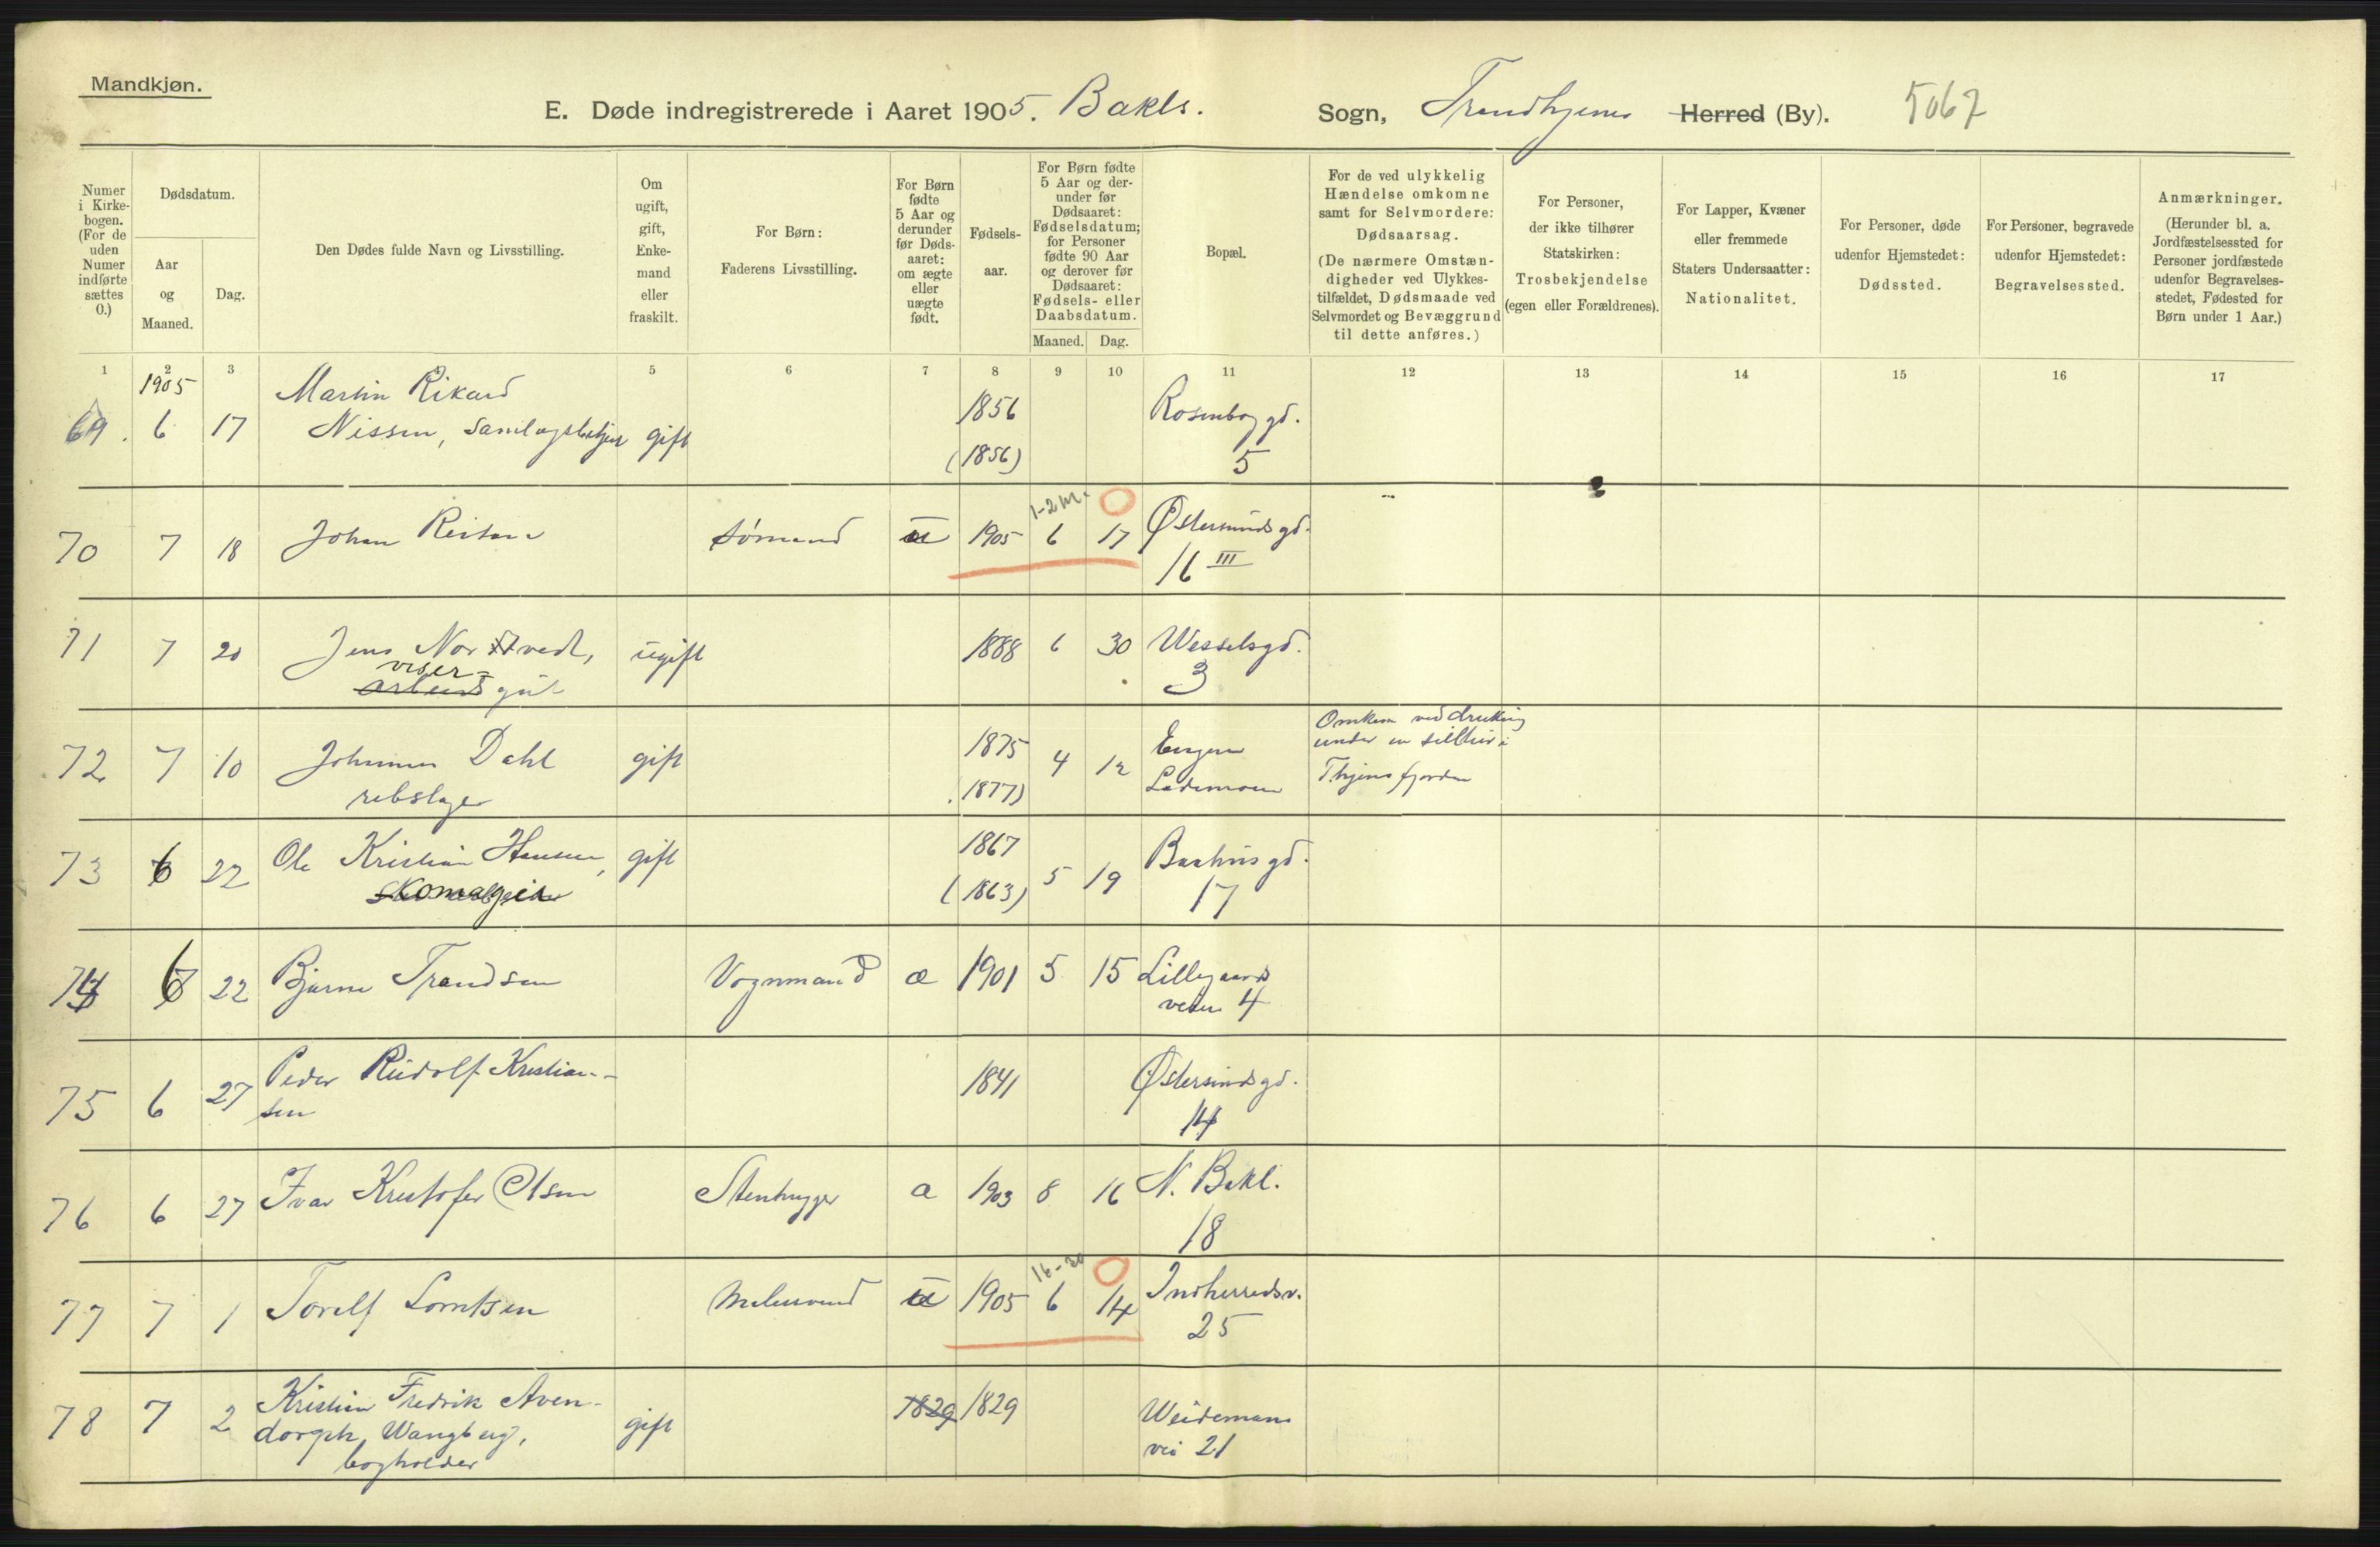 Mandkjøn.
E. Døde indregistrerede i Aaret 1905. Bakls. Sogn, Trondhjems Herred (By). 5067
Numer i Kirke-bogen. (For de uden Numer indførte sættes 0.)
Dødsdatum.
Aar og Maaned.
Dag.
Den Dødes fulde Navn og Livsstilling.
Om ugift, gift, Enke-mand eller fraskilt.
For Børn:
Faderens Livsstilling.
For Børn fødte 5 Aar og derunder før Døds-aaret: om ægte eller uægte født.
Fødsels-aar.
For Børn fødte 5 Aar og der-under før Dødsaaret: Fødselsdatum; for Personer fødte 90 Aar og derover før Dødsaaret: Fødsels- eller Daabsdatum.
Maaned. Dag.
Bopæl.
For de ved ulykkelig Hændelse omkomne samt for Selvmordere: Dødsaarsag.
(De nærmere Omstæn-digheder ved Ulykkes-tilfældet, Dødsmaade ved Selvmordet og Bevæggrund til dette anføres.)
For Personer, der ikke tilhører Statskirken: Trosbekjendelse (egen eller Forældrenes).
For Lapper, Kvæner eller fremmede Staters Undersaatter: Nationalitet.
For Personer, døde udenfor Hjemstedet: Dødssted.
For Personer, begravede udenfor Hjemstedet: Begravelsessted.
Anmærkninger.
(Herunder bl. a. Jordfæstelsessted for Personer jordfæstede udenfor Begravelses-stedet, Fødested for Børn under 1 Aar.)
1 2 3 5 6 7 8 9 10 11 12 13 14 15 16 17
1905 Martin Rikard 1856 Rosenborggd.
69. 6 17 Nissen, gift
(1856) 5
1-2 m. 0
70 7 18 Johan Reitan sømand u 1905 6 17 Østersundsgd.
16 III
71 7 20 Jens Nordtvedt, ugift 1888 6 30 Wesselsgd.
viser-
arbeidsgut 3
Omkom ved drukning
72 7 10 Johannes Dahl gift 1875 4 12 Engen under en i
rebslager (1877) Lademoen Thjemsfjorden
73 6 22 Ole Kristian Hansen, gift 1867 5 19 Baahusgd.
skomager (1863) 17
74 6 22 Bjarne Trondsen Vognmand æ 1901 5 15 Lillegaards
veien 4
75 6 27 Peder Rudolf Kristian- 1841 Østersundsgd.
sen 14
76 6 27 Ivar Kristofer Olsen Stenhugger æ 1903 8 16 N. Bakl.
18
16-30 0
77 7 1 Torolf Lorntsen u 1905 6 14 Indherredsv.
25
78 7 2 Kristian Fredrik Aven- gift 1829 1829 Weidemans
dorph Wangberg, vei 21
bogholder